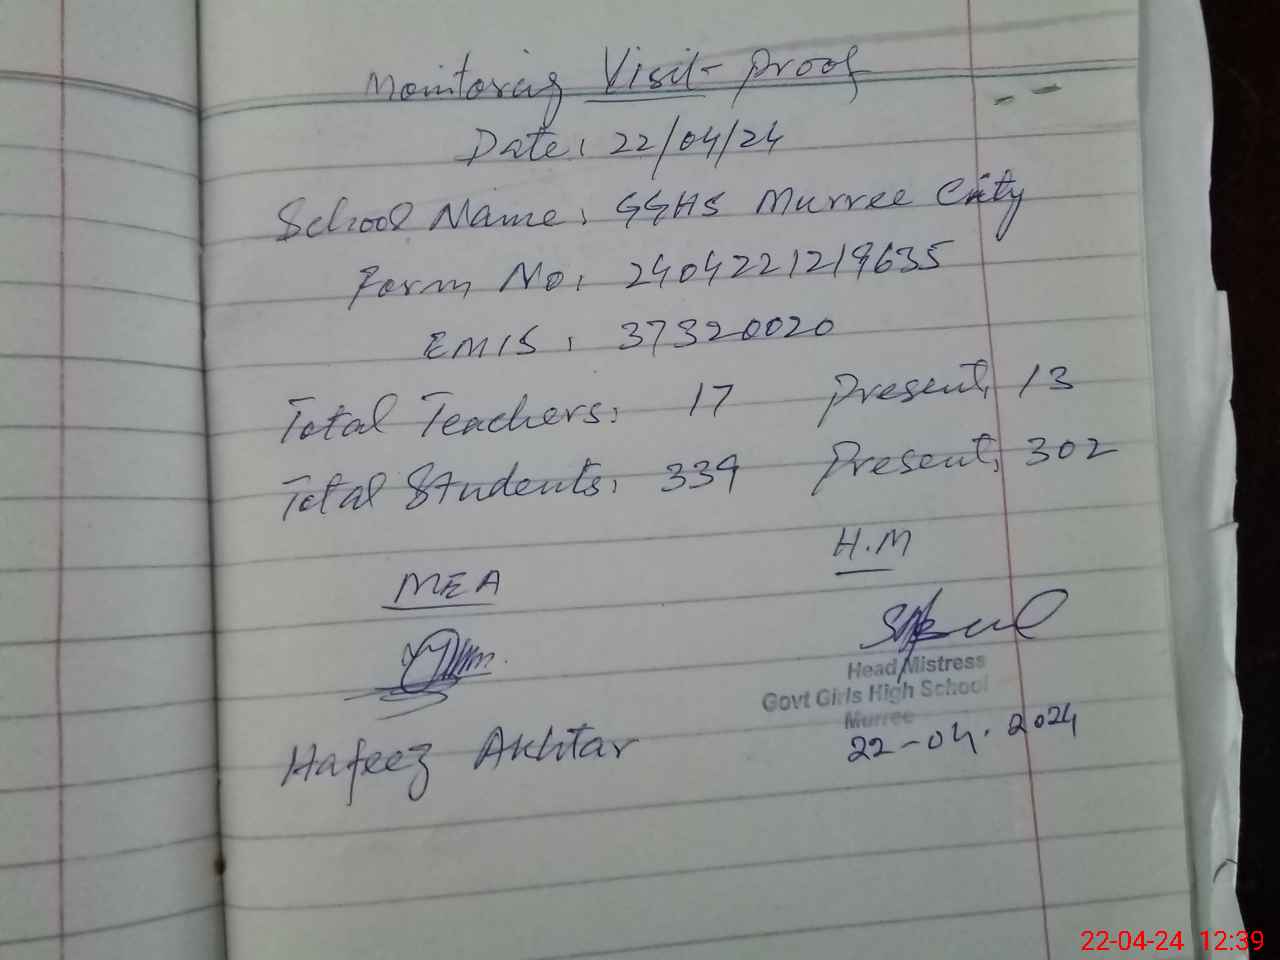 Monitoring Visit-Proof
Date: 22/04/24
School Name: GGHS Murree City
Form No: 2404221219635
EMIS: 37320020
Total Teachers: 17 Present: 13
Total Students: 339 Present: 302
MEA
H.M
Head Mistress
Govt Girls High School
Murree
22-04.2024
Hafeez Akhtar
22-04-24 12:39